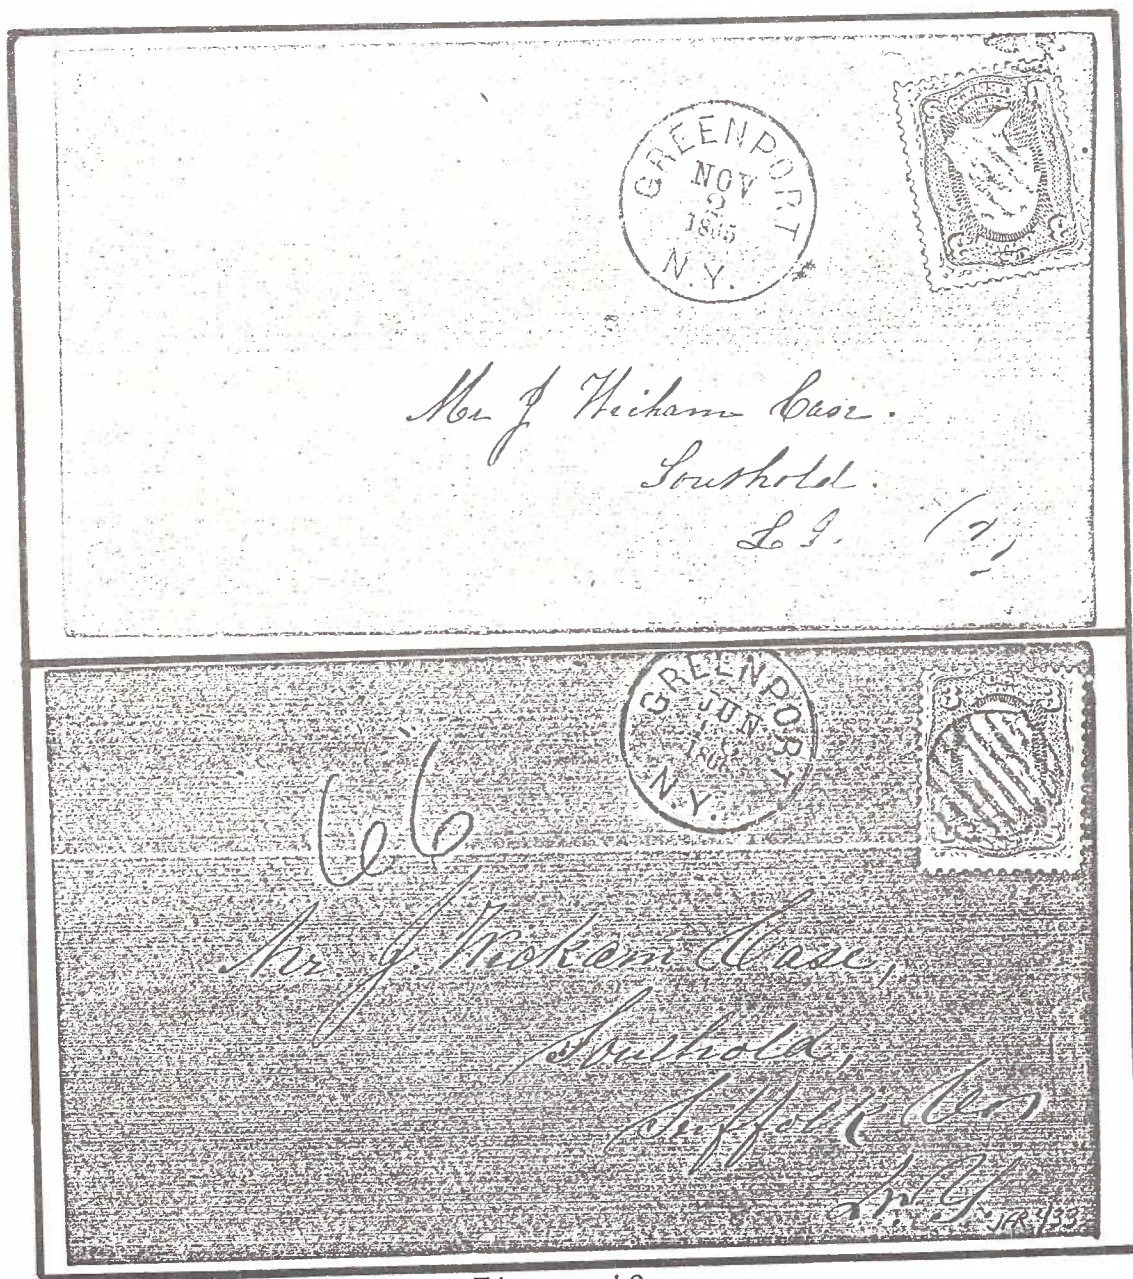 GREENPORT
NOV
2
1865
N.Y.
Mr J Wickham Case.
Southold.
L I.
GREENPORT
JUN
1866
N.Y.
66
Mr. J. Wickam Case,
Southold,
Suffolk Co
N. Y.